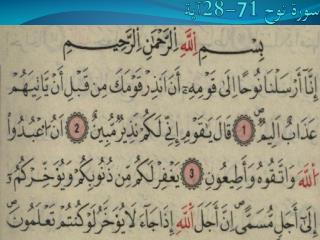 سورة نوح 71-28آية
بِسْمِ اللَّهِ الرَّحْمَٰنِ الرَّحِيمِ
إِنَّا أَرْسَلْنَا نُوحًا إِلَىٰ قَوْمِهِ أَنْ أَنذِرْ قَوْمَكَ مِن قَبْلِ أَن يَأْتِيَهُمْ
عَذَابٌ أَلِيمٌ 1 قَالَ يَٰقَوْمِ إِنِّي لَكُمْ نَذِيرٌ مُّبِينٌ 2 أَنِ اعْبُدُوا
اللَّهَ وَاتَّقُوهُ وَأَطِيعُونِ 3 يَغْفِرْ لَكُم مِّن ذُنُوبِكُمْ وَيُؤَخِّرْكُمْ
إِلَىٰ أَجَلٍ مُّسَمًّى إِنَّ أَجَلَ اللَّهِ إِذَا جَاءَ لَا يُؤَخَّرُ لَوْ كُنتُمْ تَعْلَمُونَ